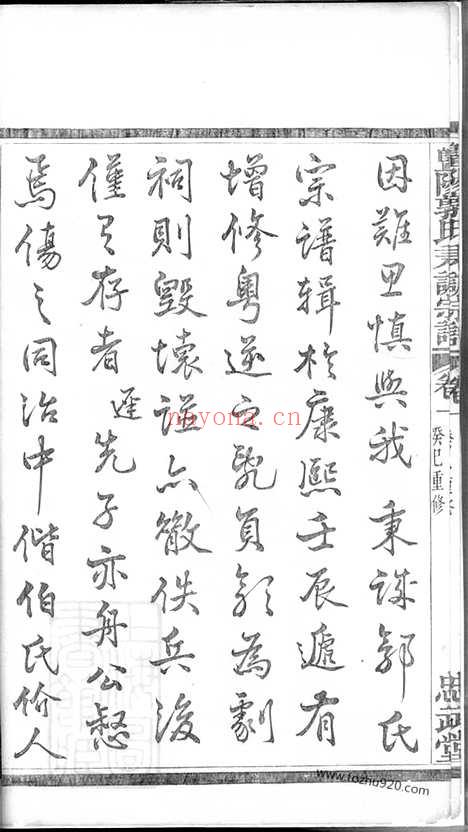 暨陽郭氏秉誠宗譜 卷一 癸巳重修 堂
因難且慎與我秉誠郭氏
宗譜輯於康熙壬辰遞有
增修粵逆之亂負郭為劇
祠則毀壞譜亦散佚兵後
僅有存者遲先子亦舟公惄
焉傷之同治中偕伯氏价人
nayona.cn
www.tozhu920.com